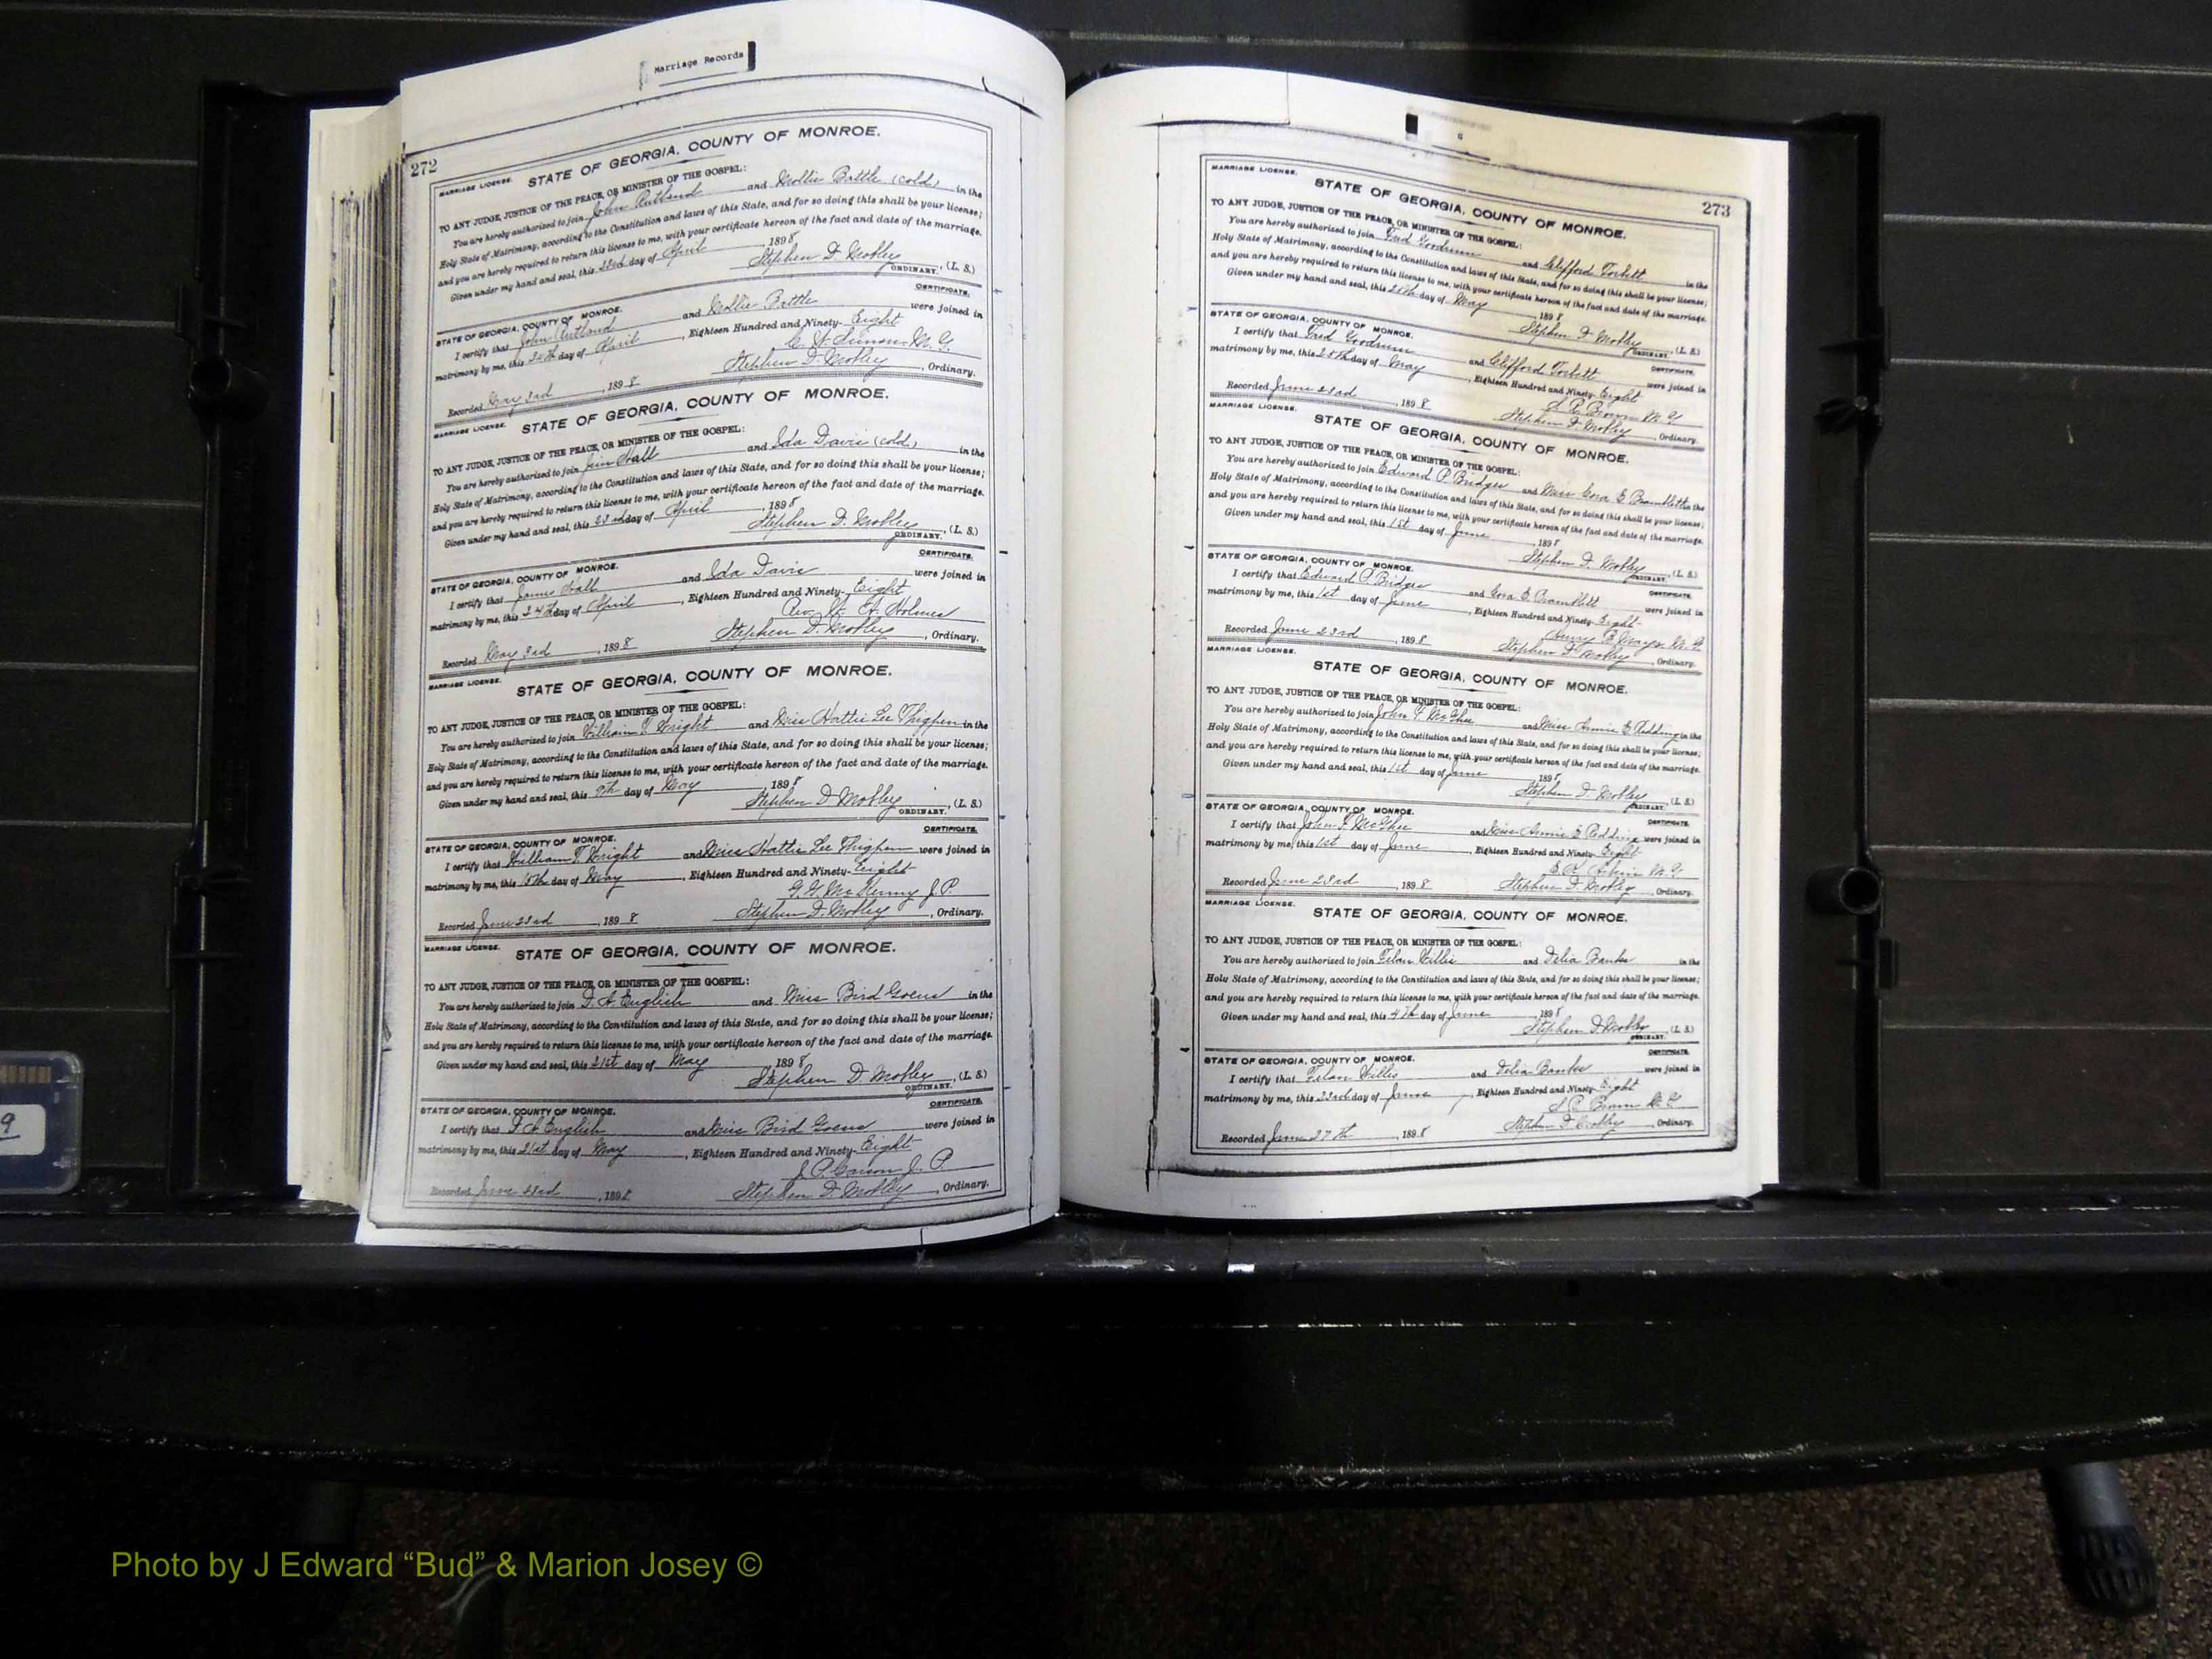 Marriage Records
272
MARRIAGE LICENSE.
STATE OF GEORGIA, COUNTY OF MONROE.
TO ANY JUDGE, JUSTICE OF THE PEACE, OR MINISTER OF THE GOSPEL:
You are hereby authorized to join John Rutland and Mollie Battle (cold) in the
Holy State of Matrimony, according to the Constitution and laws of this State, and for so doing this shall be your license;
and you are hereby required to return this license to me, with your certificate hereon of the fact and date of the marriage.
Given under my hand and seal, this 23rd day of April, 1898
Stephen D. Mobley, (L. S.)
ORDINARY.
CERTIFICATE.
STATE OF GEORGIA, COUNTY OF MONROE.
I certify that John Rutland and Mollie Battle were joined in
matrimony by me, this 24th day of April, Eighteen Hundred and Ninety-Eight
M. G.
Recorded May 3rd, 1898 Stephen D. Mobley, Ordinary.
MARRIAGE LICENSE.
STATE OF GEORGIA, COUNTY OF MONROE.
TO ANY JUDGE, JUSTICE OF THE PEACE, OR MINISTER OF THE GOSPEL:
You are hereby authorized to join Jim Hall and Ida Davis (cold) in the
Holy State of Matrimony, according to the Constitution and laws of this State, and for so doing this shall be your license;
and you are hereby required to return this license to me, with your certificate hereon of the fact and date of the marriage.
Given under my hand and seal, this 23rd day of April, 1898
Stephen D. Mobley, (L. S.)
ORDINARY.
CERTIFICATE.
STATE OF GEORGIA, COUNTY OF MONROE.
I certify that James Hall and Ida Davis were joined in
matrimony by me, this 24th day of April, Eighteen Hundred and Ninety-Eight
Rev. A. Holmes
Recorded May 3rd, 1898 Stephen D. Mobley, Ordinary.
MARRIAGE LICENSE.
STATE OF GEORGIA, COUNTY OF MONROE.
TO ANY JUDGE, JUSTICE OF THE PEACE, OR MINISTER OF THE GOSPEL:
You are hereby authorized to join William T. Wright and Miss Hattie Lee Thigpen in the
Holy State of Matrimony, according to the Constitution and laws of this State, and for so doing this shall be your license;
and you are hereby required to return this license to me, with your certificate hereon of the fact and date of the marriage.
Given under my hand and seal, this 9th day of May, 1898
Stephen D. Mobley, (L. S.)
ORDINARY.
CERTIFICATE.
STATE OF GEORGIA, COUNTY OF MONROE.
I certify that William T. Wright and Miss Hattie Lee Thigpen were joined in
matrimony by me, this 15th day of May, Eighteen Hundred and Ninety-Eight
J. P.
Recorded June 23rd, 1898 Stephen D. Mobley, Ordinary.
MARRIAGE LICENSE.
STATE OF GEORGIA, COUNTY OF MONROE.
TO ANY JUDGE, JUSTICE OF THE PEACE, OR MINISTER OF THE GOSPEL:
You are hereby authorized to join D. A. English and Miss Bird Goens in the
Holy State of Matrimony, according to the Constitution and laws of this State, and for so doing this shall be your license;
and you are hereby required to return this license to me, with your certificate hereon of the fact and date of the marriage.
Given under my hand and seal, this 21st day of May, 1898
Stephen D. Mobley, (L. S.)
ORDINARY.
CERTIFICATE.
STATE OF GEORGIA, COUNTY OF MONROE.
I certify that D. A. English and Miss Bird Goens were joined in
matrimony by me, this 21st day of May, Eighteen Hundred and Ninety-Eight
J. P. Carson J. P.
Recorded June 23rd, 1898 Stephen D. Mobley, Ordinary.
273
MARRIAGE LICENSE.
STATE OF GEORGIA, COUNTY OF MONROE.
TO ANY JUDGE, JUSTICE OF THE PEACE, OR MINISTER OF THE GOSPEL:
You are hereby authorized to join Fred Goodrum and Clifford Torbett in the
Holy State of Matrimony, according to the Constitution and laws of this State, and for so doing this shall be your license;
and you are hereby required to return this license to me, with your certificate hereon of the fact and date of the marriage.
Given under my hand and seal, this 28th day of May, 1898
Stephen D. Mobley, (L. S.)
ORDINARY.
CERTIFICATE.
STATE OF GEORGIA, COUNTY OF MONROE.
I certify that Fred Goodrum and Clifford Torbett were joined in
matrimony by me, this 28th day of May, Eighteen Hundred and Ninety-Eight
Brown M. G.
Recorded June 23rd, 1898 Stephen D. Mobley, Ordinary.
MARRIAGE LICENSE.
STATE OF GEORGIA, COUNTY OF MONROE.
TO ANY JUDGE, JUSTICE OF THE PEACE, OR MINISTER OF THE GOSPEL:
You are hereby authorized to join Edward P. Bridges and Miss Cora E Bramblett in the
Holy State of Matrimony, according to the Constitution and laws of this State, and for so doing this shall be your license;
and you are hereby required to return this license to me, with your certificate hereon of the fact and date of the marriage.
Given under my hand and seal, this 1st day of June, 1898
Stephen D. Mobley, (L. S.)
ORDINARY.
CERTIFICATE.
STATE OF GEORGIA, COUNTY OF MONROE.
I certify that Edward P. Bridges and Cora E. Bramblett were joined in
matrimony by me, this 1st day of June, Eighteen Hundred and Ninety-Eight
Henry B. Mays M. G.
Recorded June 23rd, 1898 Stephen D. Mobley, Ordinary.
MARRIAGE LICENSE.
STATE OF GEORGIA, COUNTY OF MONROE.
TO ANY JUDGE, JUSTICE OF THE PEACE, OR MINISTER OF THE GOSPEL:
You are hereby authorized to join John F. McGhee and Miss Annie E Redding in the
Holy State of Matrimony, according to the Constitution and laws of this State, and for so doing this shall be your license;
and you are hereby required to return this license to me, with your certificate hereon of the fact and date of the marriage.
Given under my hand and seal, this 1st day of June, 1898
Stephen D. Mobley, (L. S.)
ORDINARY.
CERTIFICATE.
STATE OF GEORGIA, COUNTY OF MONROE.
I certify that John F. McGhee and Miss Annie E Redding were joined in
matrimony by me, this 1st day of June, Eighteen Hundred and Ninety-Eight
M. G.
Recorded June 23rd, 1898 Stephen D. Mobley, Ordinary.
MARRIAGE LICENSE.
STATE OF GEORGIA, COUNTY OF MONROE.
TO ANY JUDGE, JUSTICE OF THE PEACE, OR MINISTER OF THE GOSPEL:
You are hereby authorized to join Willis and Delia Banks in the
Holy State of Matrimony, according to the Constitution and laws of this State, and for so doing this shall be your license;
and you are hereby required to return this license to me, with your certificate hereon of the fact and date of the marriage.
Given under my hand and seal, this 4th day of June, 1898
Stephen D. Mobley, (L. S.)
ORDINARY.
CERTIFICATE.
STATE OF GEORGIA, COUNTY OF MONROE.
I certify that Willis and Delia Banks were joined in
matrimony by me, this 23rd day of June, Eighteen Hundred and Ninety-Eight
Brown M. G.
Recorded June 27th, 1898 Stephen D. Mobley, Ordinary.
9
Photo by J Edward “Bud” & Marion Josey ©